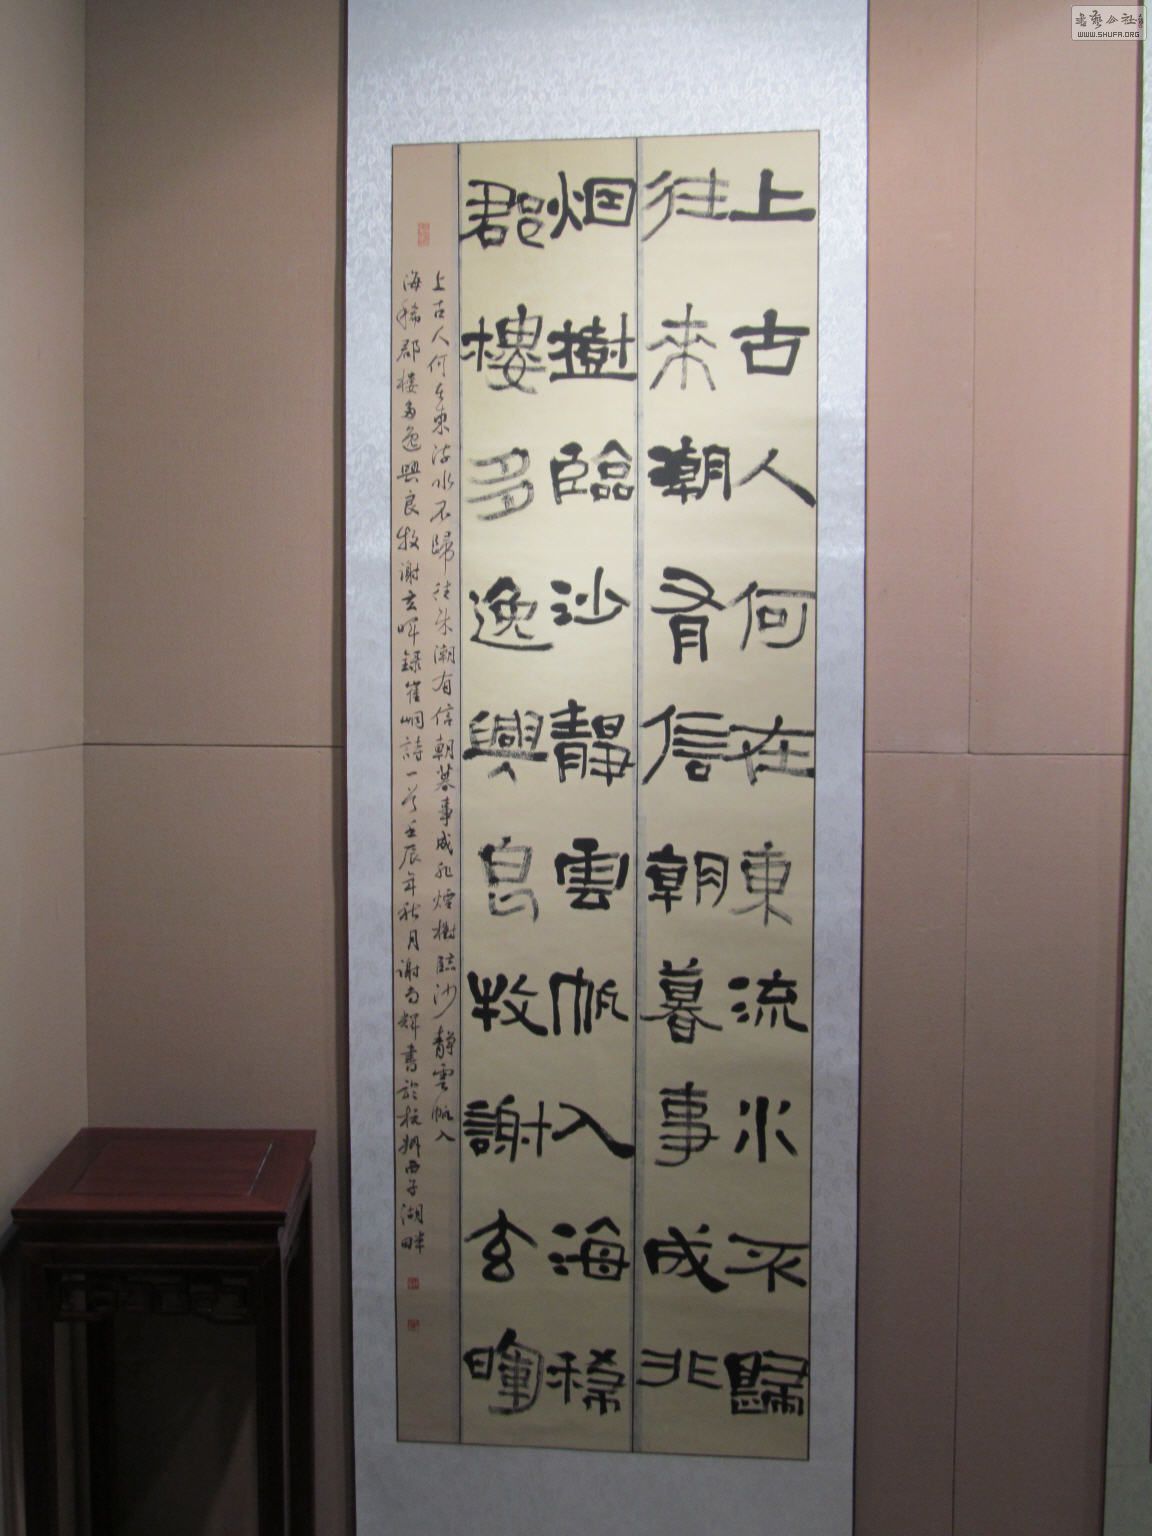 上古人何在東流水不歸
往來潮有信朝暮事成非
烟樹臨沙靜雲帆入海稀
郡樓多逸興良牧謝玄暉
上古人何在東流水不歸往來潮有信朝暮事成非煙樹臨沙靜雲帆入
海稀郡樓多逸興良牧謝玄暉錄崔峒詩一首壬辰年秋月謝尚輝書於杭州西子湖畔
書藝公社
WWW.SHUFA.ORG